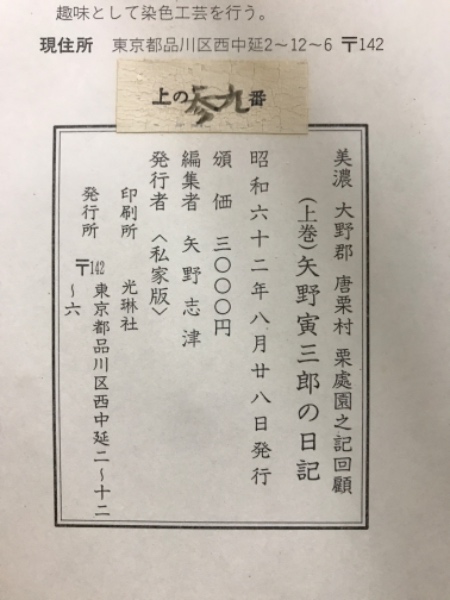 趣味として染色工芸を行う。
現住所　東京都品川区西中延2〜12〜6　〒142
上の参九番
美濃　大野郡　唐栗村　栗處園之記回顧
(上巻)矢野寅三郎の日記
昭和六十二年八月廿八日発行
頒　価　三〇〇〇円
編集者　矢野志津
発行者　〈私家版〉
印刷所　光琳社
発行所　〒142　東京都品川区西中延二〜十二
〜六